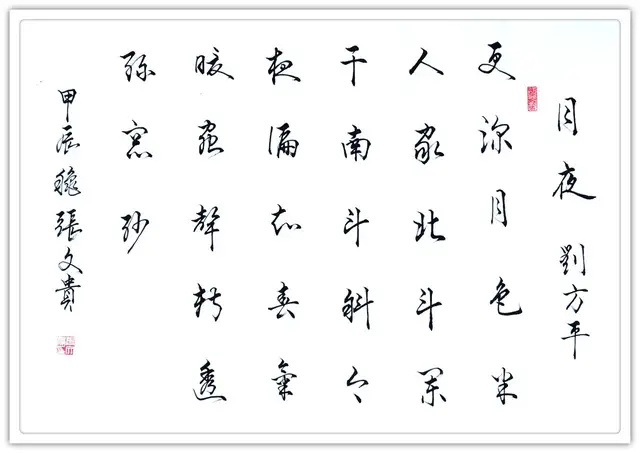 月夜 劉方平
更深月色半
人家北斗闌
干南斗斜今
夜偏知春氣
暖虫聲新透
綠窓紗
甲辰穐張文貴